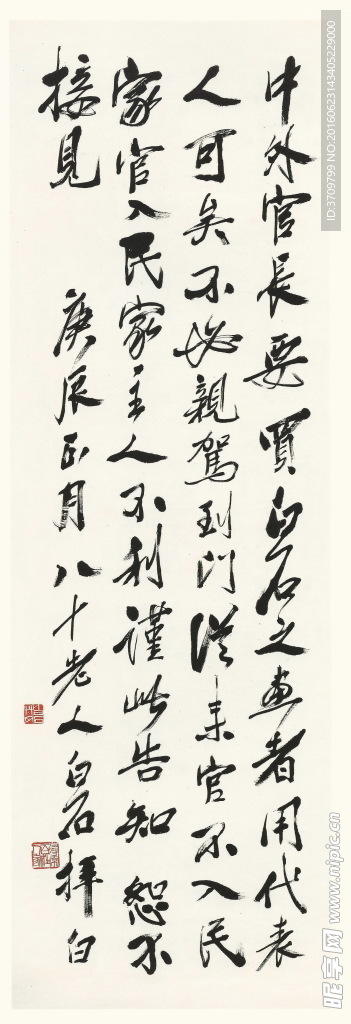 中外官長要買白石之畫者用代表
人可矣不必親駕到門從來官不入民
家官入民家主人不利謹此告知恕不
接見
庚辰正月八十老人白石拜白
ID:3709799 NO:20160623143405229000
昵享网 www.nipic.cn